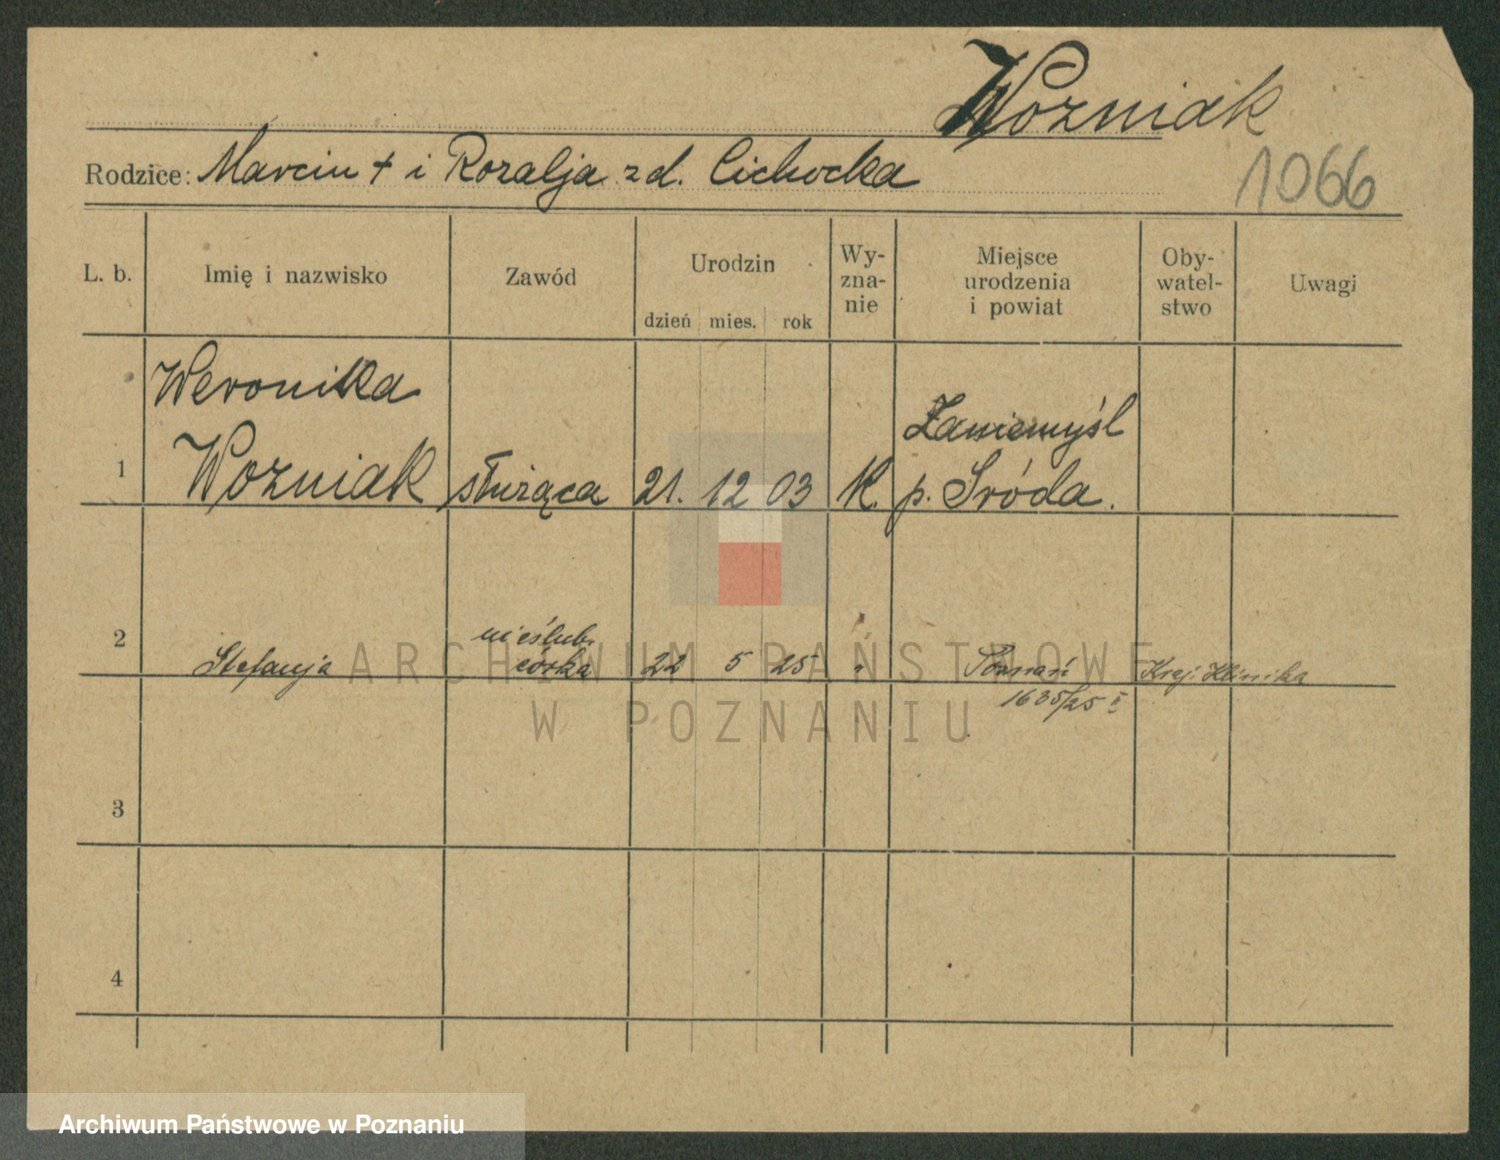 Wozniak
Rodzice: Marcin + i Rozalja zd. Cichocka
1066
L. b. Imię i nazwisko Zawód Urodzin Wy-zna-nie Miejsce urodzenia i powiat Oby-watel-stwo Uwagi
dzień mies. rok
Weronika
Zaniemyśl
1 Wozniak służąca 21. 12 03 K. p. Sróda.
nieślub.
2 Stefanja córka 22 5 25 " Poznań Kraj. Klinika
1635/25 II
3
4
ARCHIWUM PAŃSTWOWE
W POZNANIU
Archiwum Państwowe w Poznaniu